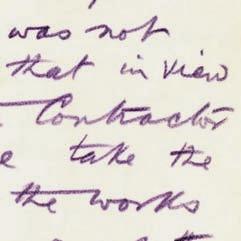 was not
that in view
Contractor
take the
the works